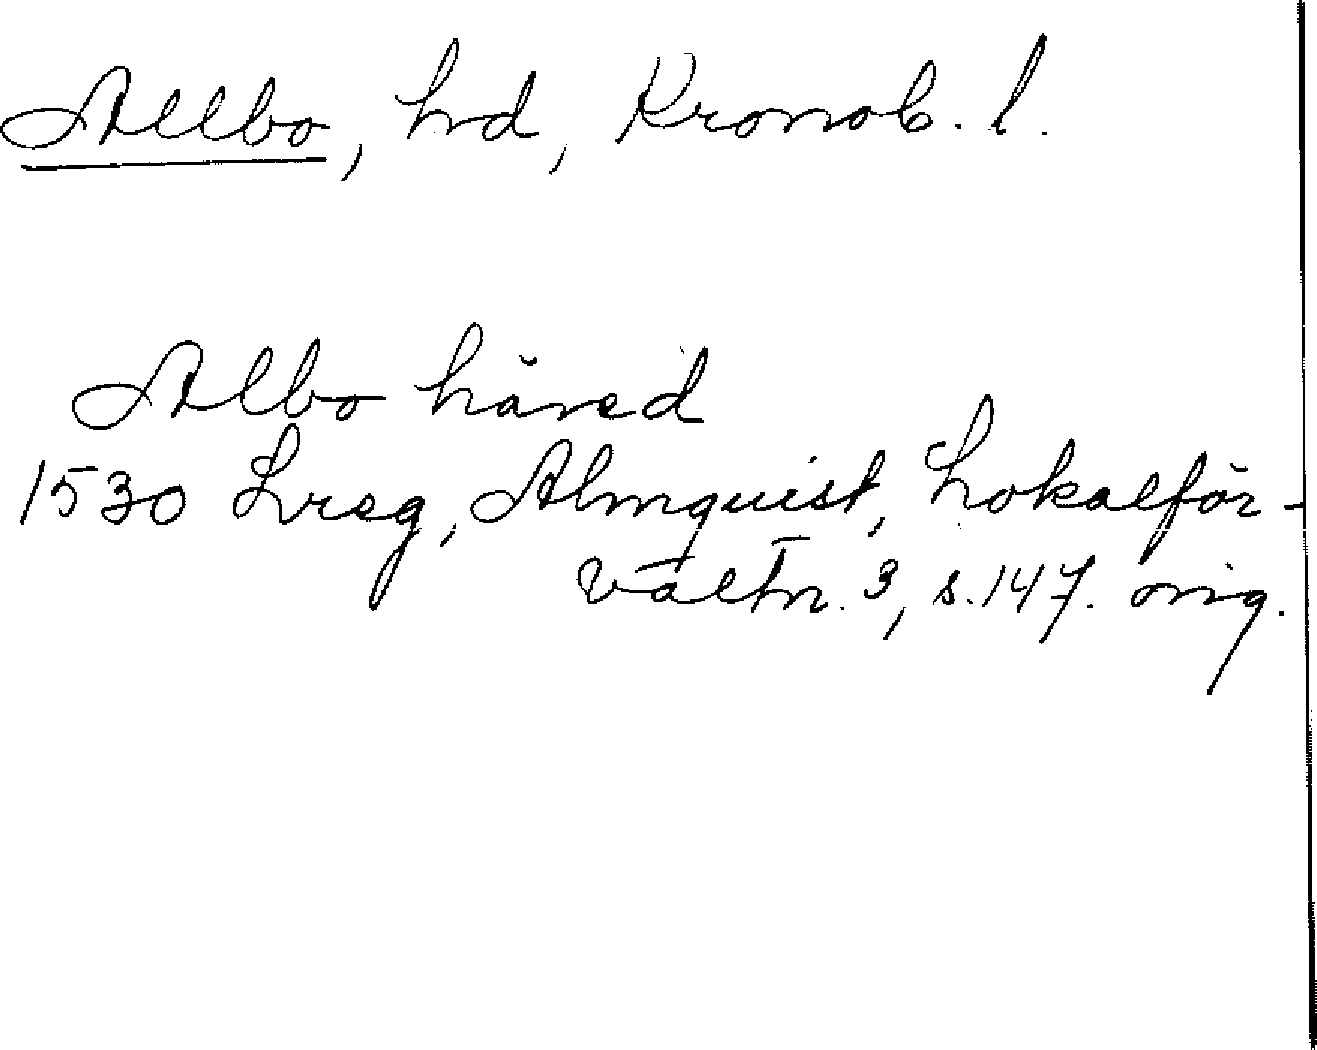 Allbo, hrd, Kronob. l.
Albo häred
1530 Lreg, Almquist, Lokalför-
valtn. 3, s. 147. orig.